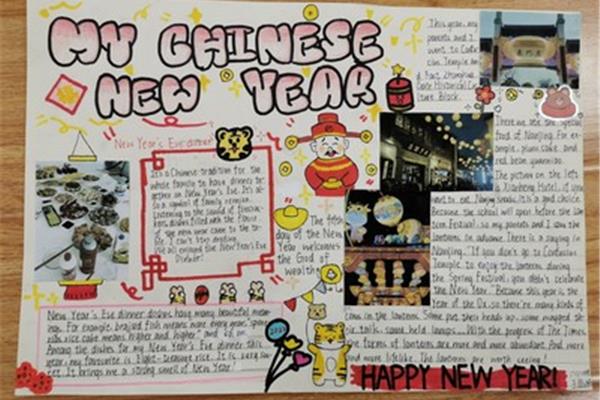 MY CHINESE
NEW YEAR
This year, my
parents and I
went to Confu-
cian Temple an-
New Year's Eve dinner
It's a Chinese tradition for the
whole family to have dinner to-
gether on New Year's Eve. It's al-
so a symbol of family reunion.
Listening to the sound of firecra-
ckers, dishes filled with the
of the new year came to the ta-
ble. I can't stop
We all enjoyed the New Year's Eve
Dinner!
The fifth
day of the New
Year welcomes
the God of
wealth
There are the special
food of Nanjing. For ex-
ample, plum cake and
red bean yuanxiao.
The picture on the left
is Hotel. If you
want to eat Nanjing snacks, it is a good choice.
Because the school will open before the Lan-
tern Festival, so my parents and I saw the
lanterns in advance. There is a saying in
Nanjing, "If you don't go to Confucian
Temple to enjoy the lanterns during
the Spring Festival, you didn't celebrate
the New Year." Because this year is the
Year of the Ox, so there're many kinds of
cows in the lanterns. Some put their heads up, some wagged th-
eir tails, some held lamps... With the progress of The Times,
the forms of lanterns are more and more abundant. And more
and more lifelike. The lanterns are worth seeing!
New Year's Eve dinner dishes have many beautiful mean-
ings. For example, braised fish means more every year, spare
ribs rice cake means higher and higher" and so on.
Among the dishes for my New Year's Eve dinner this
year, my favourite is Eight-treasure rice. It is very sw-
eet. It brings me a strong smell of New Year!
HAPPY NEW YEAR!